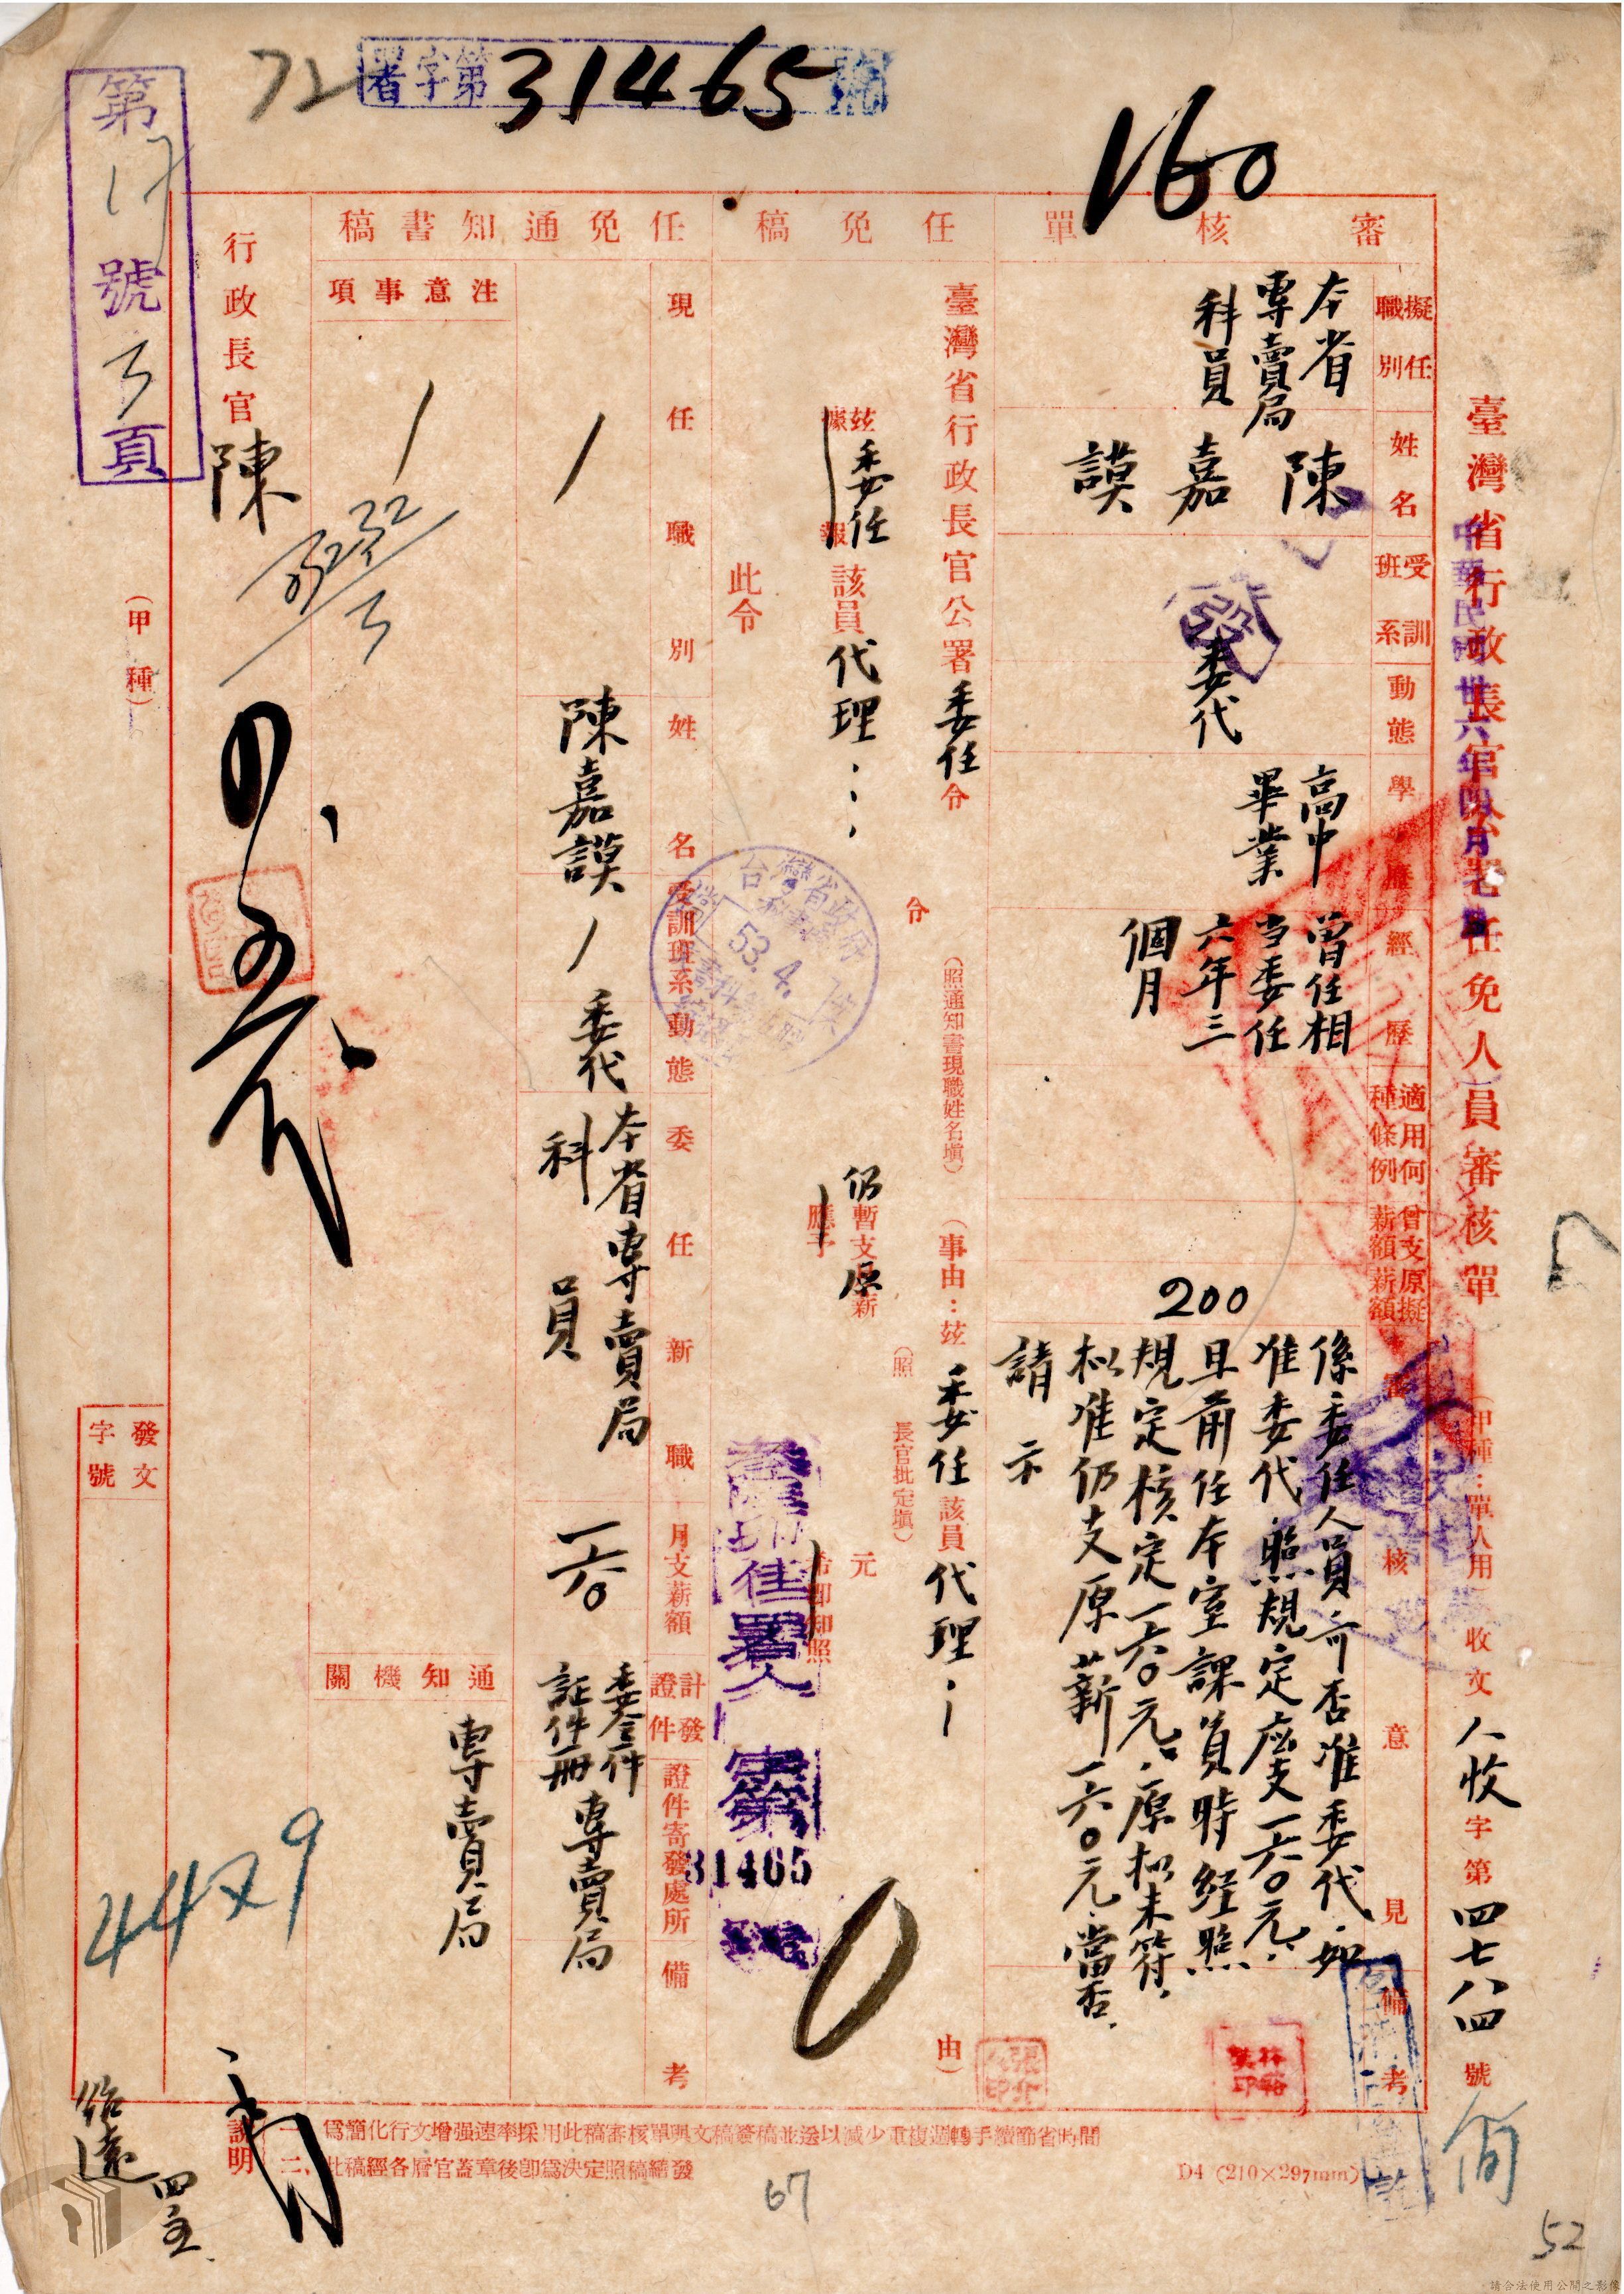 臺灣省行政長官公署任免人員審核單
(甲種：單人用)
收文 人收字第四七八四號
中華民國卅六年四月
審核單
擬任職別
本省專賣局科員
姓名
陳嘉謨
受訓班系
動態
委代
學歷
高中畢業
經歷
曾任相當委任六年三個月
適用何種條例
曾支薪額
原擬薪額
200
審核意見
係委任人員可否准委代．如
准委代．照規定應支一六〇元．
且前任本室課員時經照
規定核定一六〇元．原拟未符．
拟准仍支原薪一六〇元．當否．
請示
備考
任免稿
臺灣省行政長官公署委任令
令
(照通知書現職姓名塡)
(事由：茲委任該員代理
由)
茲委任
據報
該員代理
仍暫支原薪
應予
(照長官批定塡)
元
希卽知照
此令
署人字第31465號
任免通知書稿
現任職別
姓名
陳嘉謨
受訓班系
動態
委代
委任新職
本省專賣局
科員
月支薪額
一六〇
計發證件
委令一件
証件一冊
證件寄發處所
專賣局
備考
注意事項
通知機關
專賣局
行政長官
陳
(甲種)
發文
字號
說明
一、爲簡化行文增强速率採用此稿審核單與文稿簽稿並送以減少重複週轉手續節省時間
二、此稿經各層官蓋章後卽爲決定照稿繕發
D4 (210×297mm)
署字第31465號
72
160
第17號3頁
台灣省政府
53.4.
67
52
請合法使用公開之影像